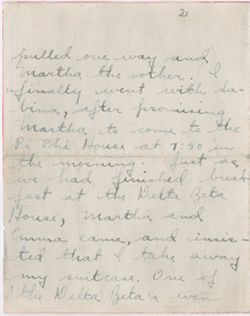 2
pulled one way and
Martha the other. I
finally went with Sa-
bina, after promising
Martha to come to the
Pi Phi House at 7:30 in
the morning. Just as
we had finished break-
fast at the Delta Zeta
House, Martha and
Emma came, and insis-
ted that I take away
my suitcase. One of
the Delta Zeta's even